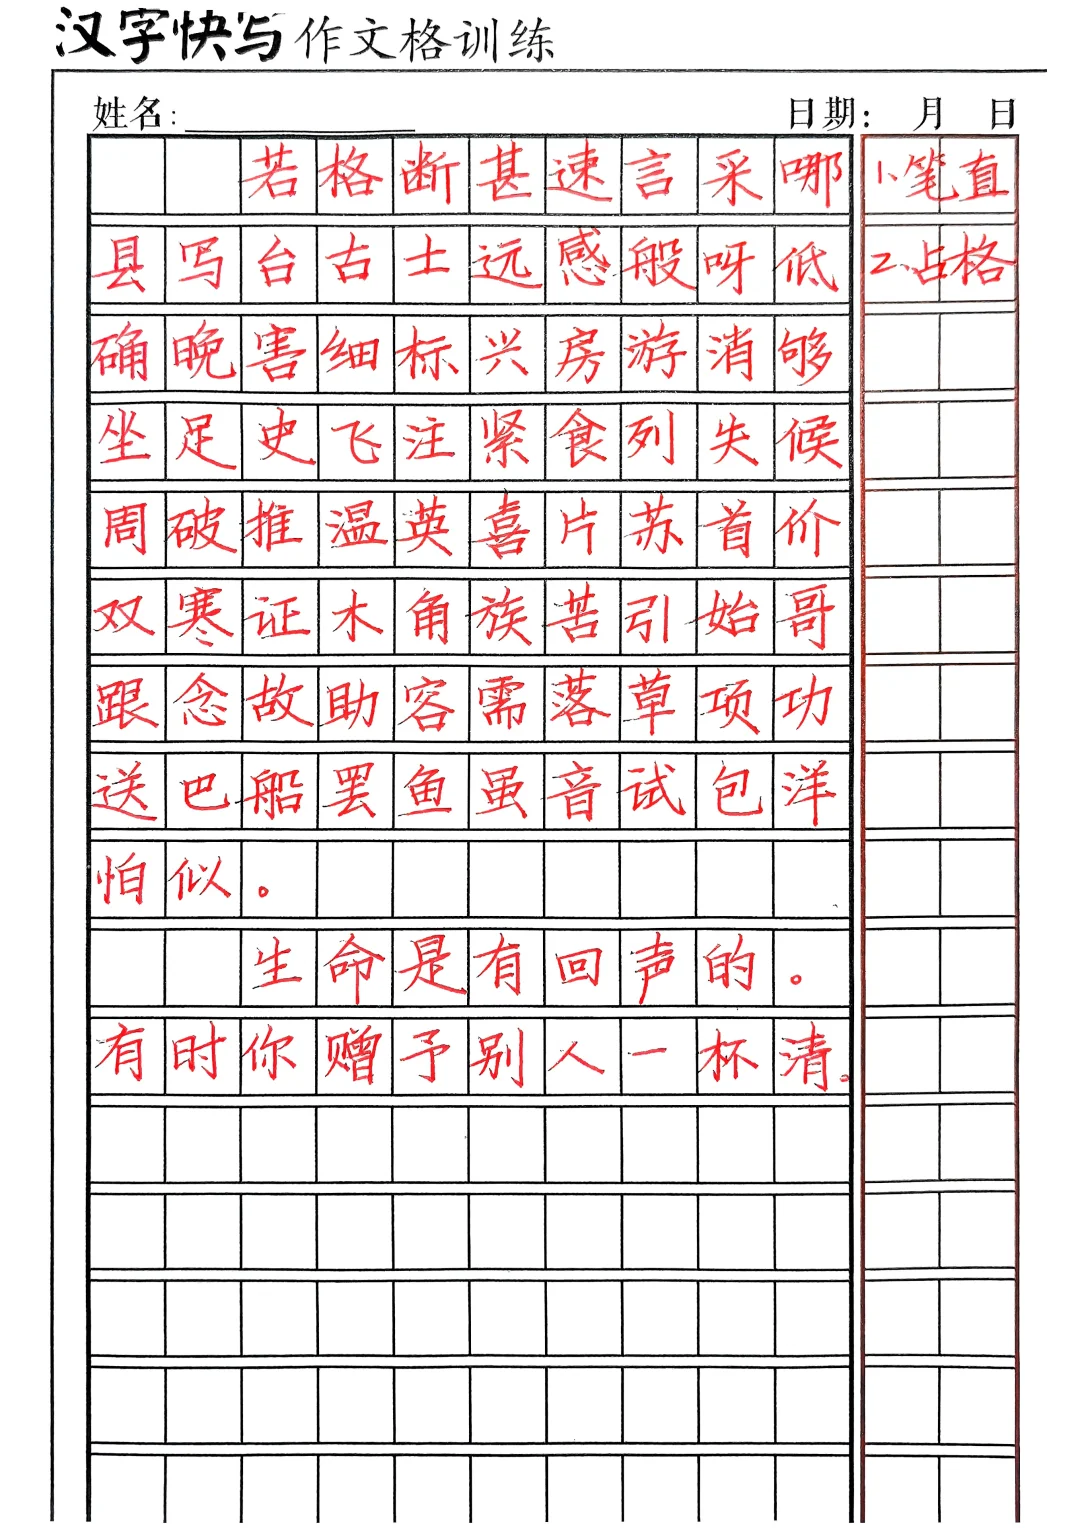 汉字快写作文格训练
姓名: 日期: 月 日
若格断甚速言采哪
县写台古士远感般呀低
确晚害细标兴房游消够
坐足史飞注紧食列失候
周破推温英喜片苏首价
双寒证木角族苦引始哥
跟念故助容需落草项功
送巴船罢鱼虽音试包洋
怕似。
生命是有回声的。
有时你赠予别人一杯清。
1、笔直
2、占格